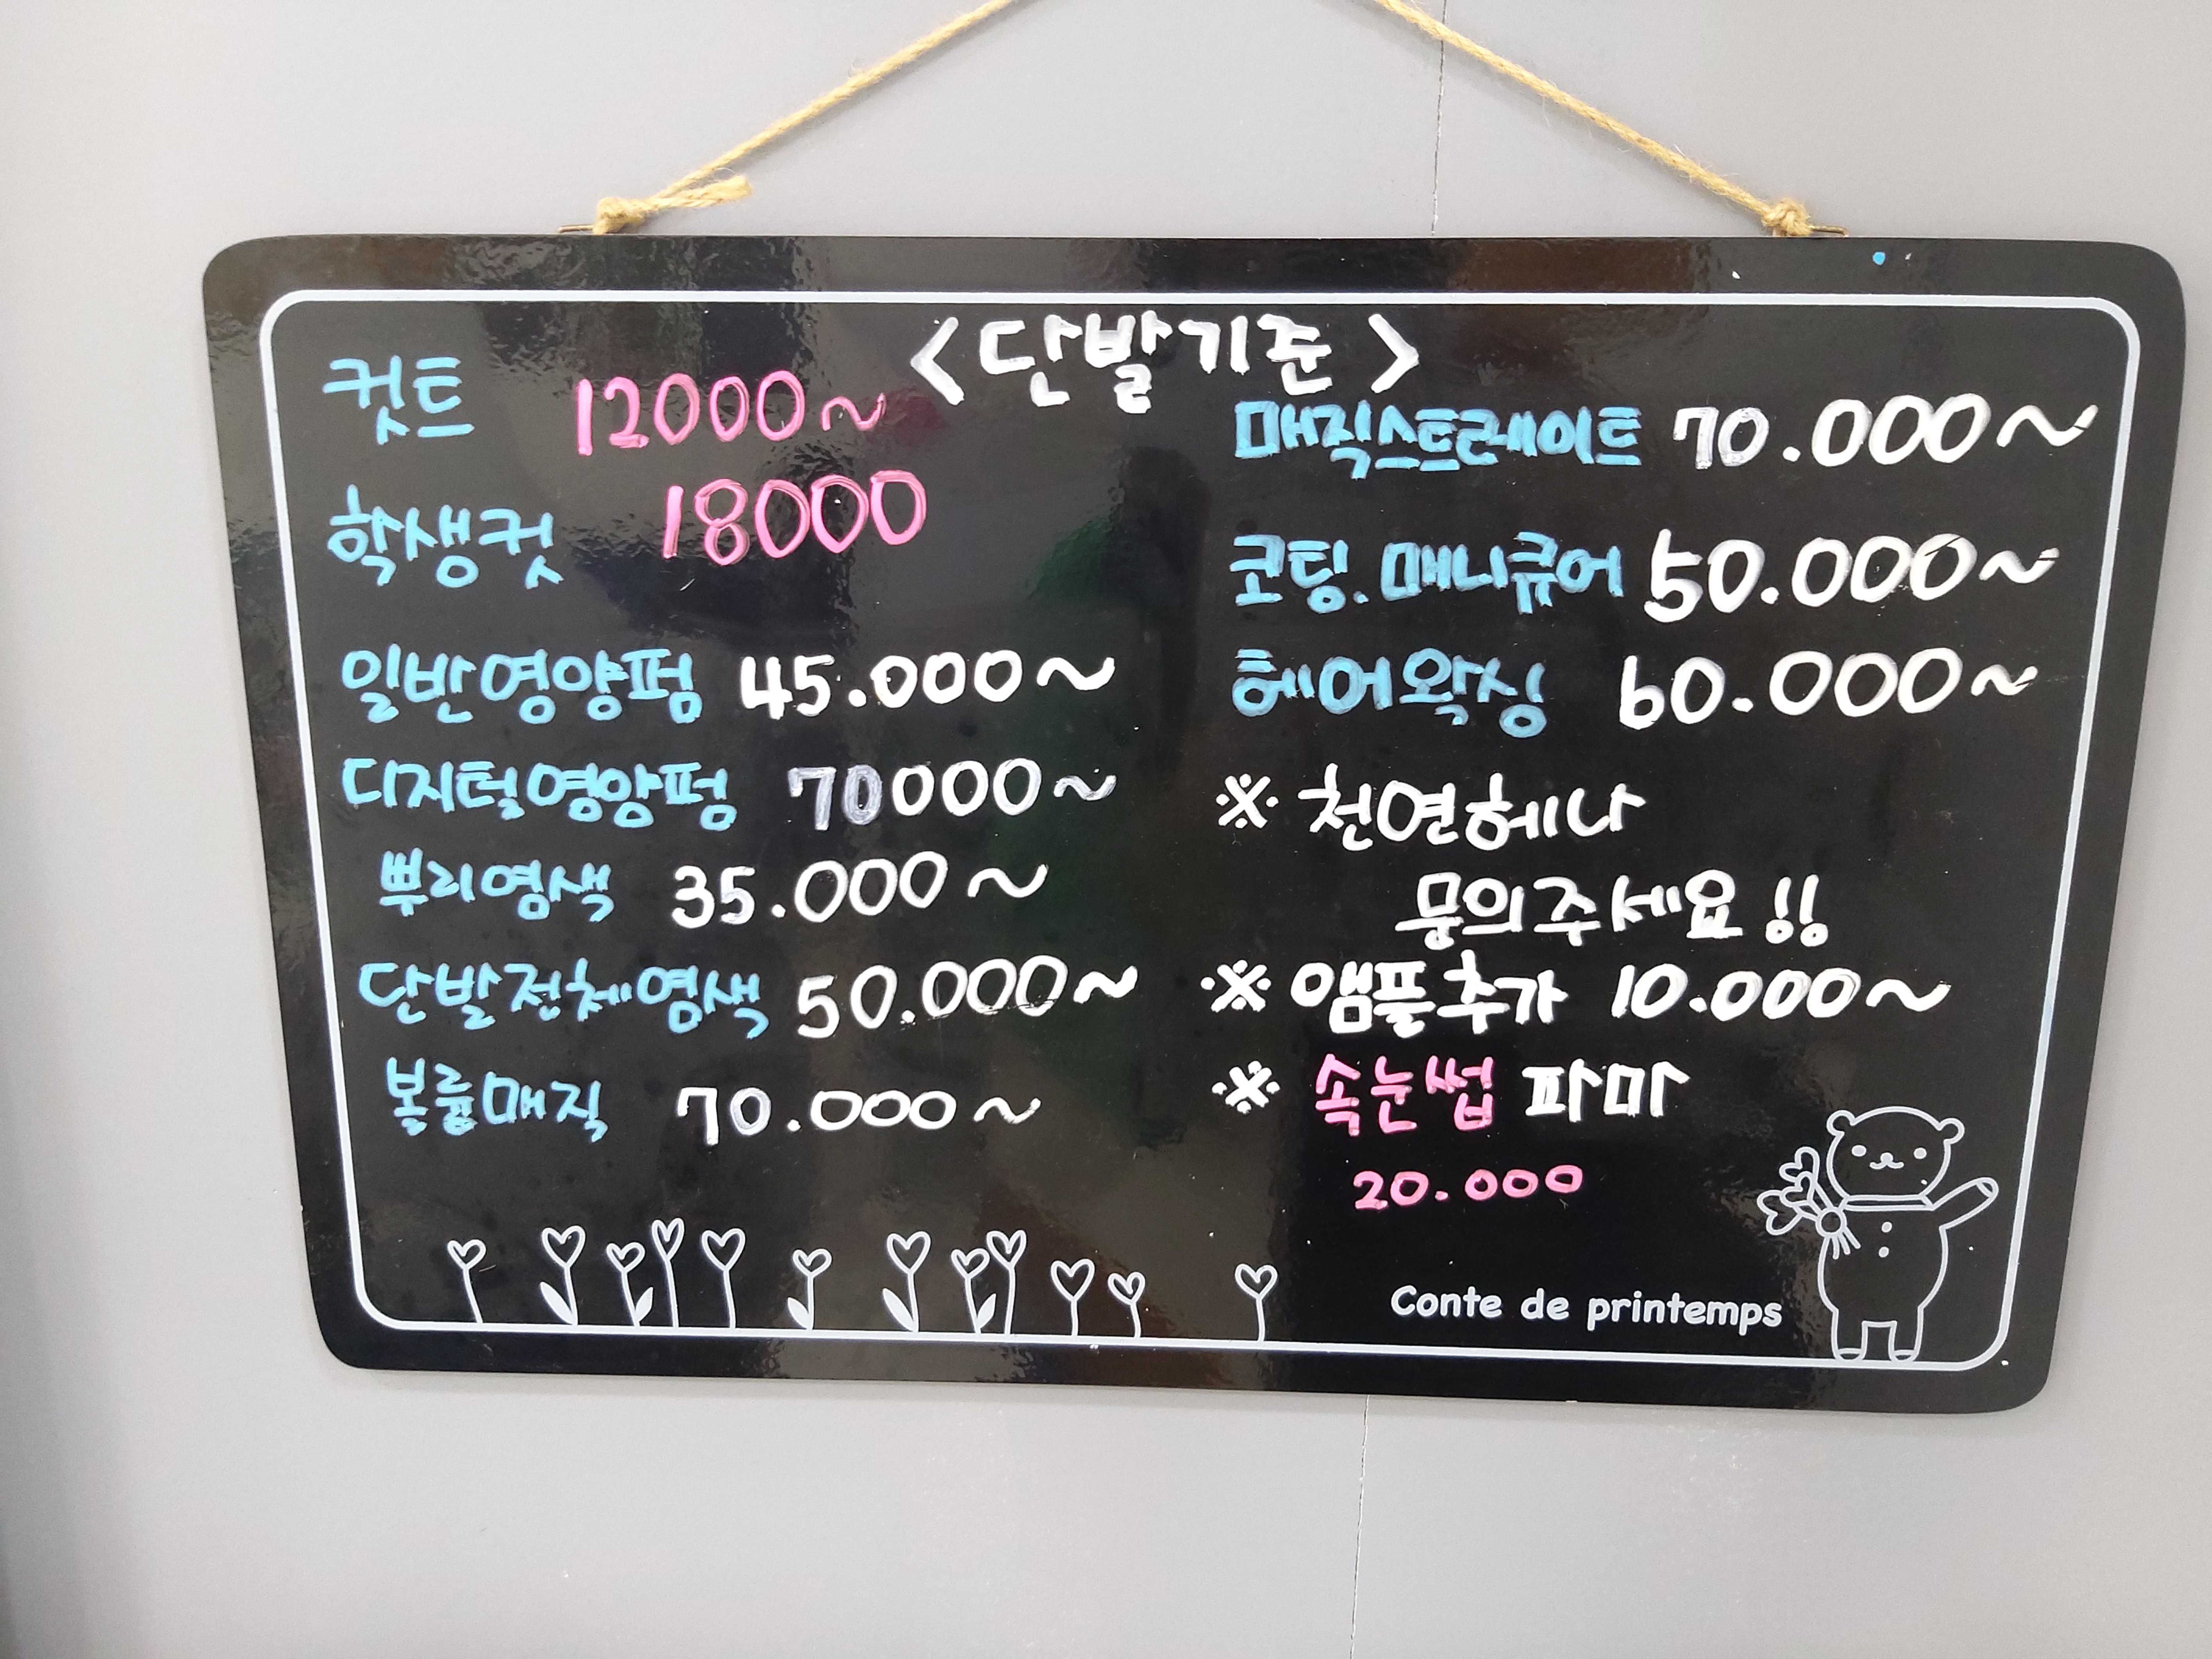 <단발기준>
컷트 12000~
학생컷 18000
일반영양펌 45.000~
디지털영양펌 70000~
뿌리염색 35.000~
단발전체염색 50.000~
볼륨매직 70.000~
매직스트레이트 70.000~
코팅.매니큐어 50.000~
헤어왁싱 60.000~
※ 천연헤나
문의주세요!!
※ 앰플추가 10.000~
※ 속눈썹 파마
20.000
Conte de printemps